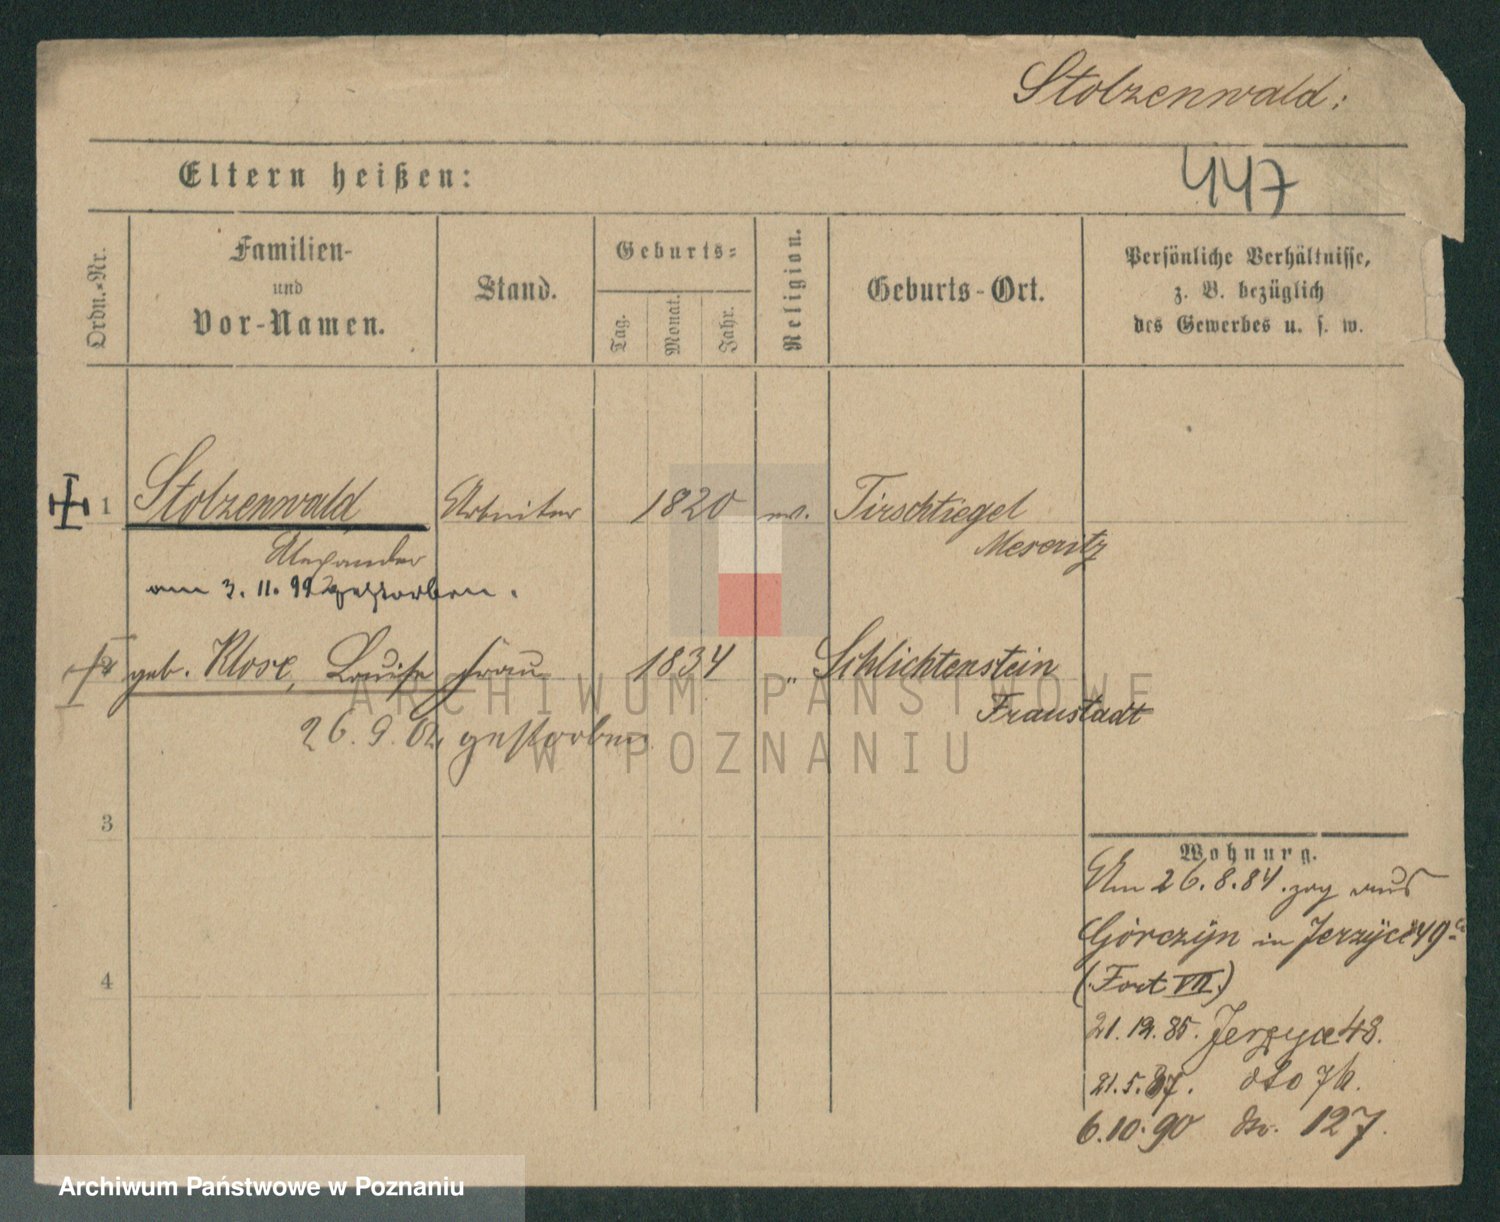 Stolzenwald:
447
Eltern heißen:
Ordn.-Nr.
Familien-
und
Vor-Namen.
Stand.
Geburts=
Tag.
Monat.
Jahr.
Religion.
Geburts-Ort.
Persönliche Verhältnisse,
z. B. bezüglich
des Gewerbes u. s. w.
1 Stolzenwald Arbeiter 1820 ev. Tirschtiegel
Alexander Meseritz
am 3. 11. 99 gestorben.
geb. Klose, Louise Frau 1834 " Schlichtenstein
Fraustadt
26. 9. 02 gestorben
3
4
Wohnung.
Am 26.8.84. zog aus
Górczyn in Jerzyce 49
(Fort VII.)
21.12.85. Jerzyce 48.
21.5.87. dto 76.
6.10.90 do. 127.
ARCHIWUM PAŃSTWOWE
W POZNANIU
Archiwum Państwowe w Poznaniu